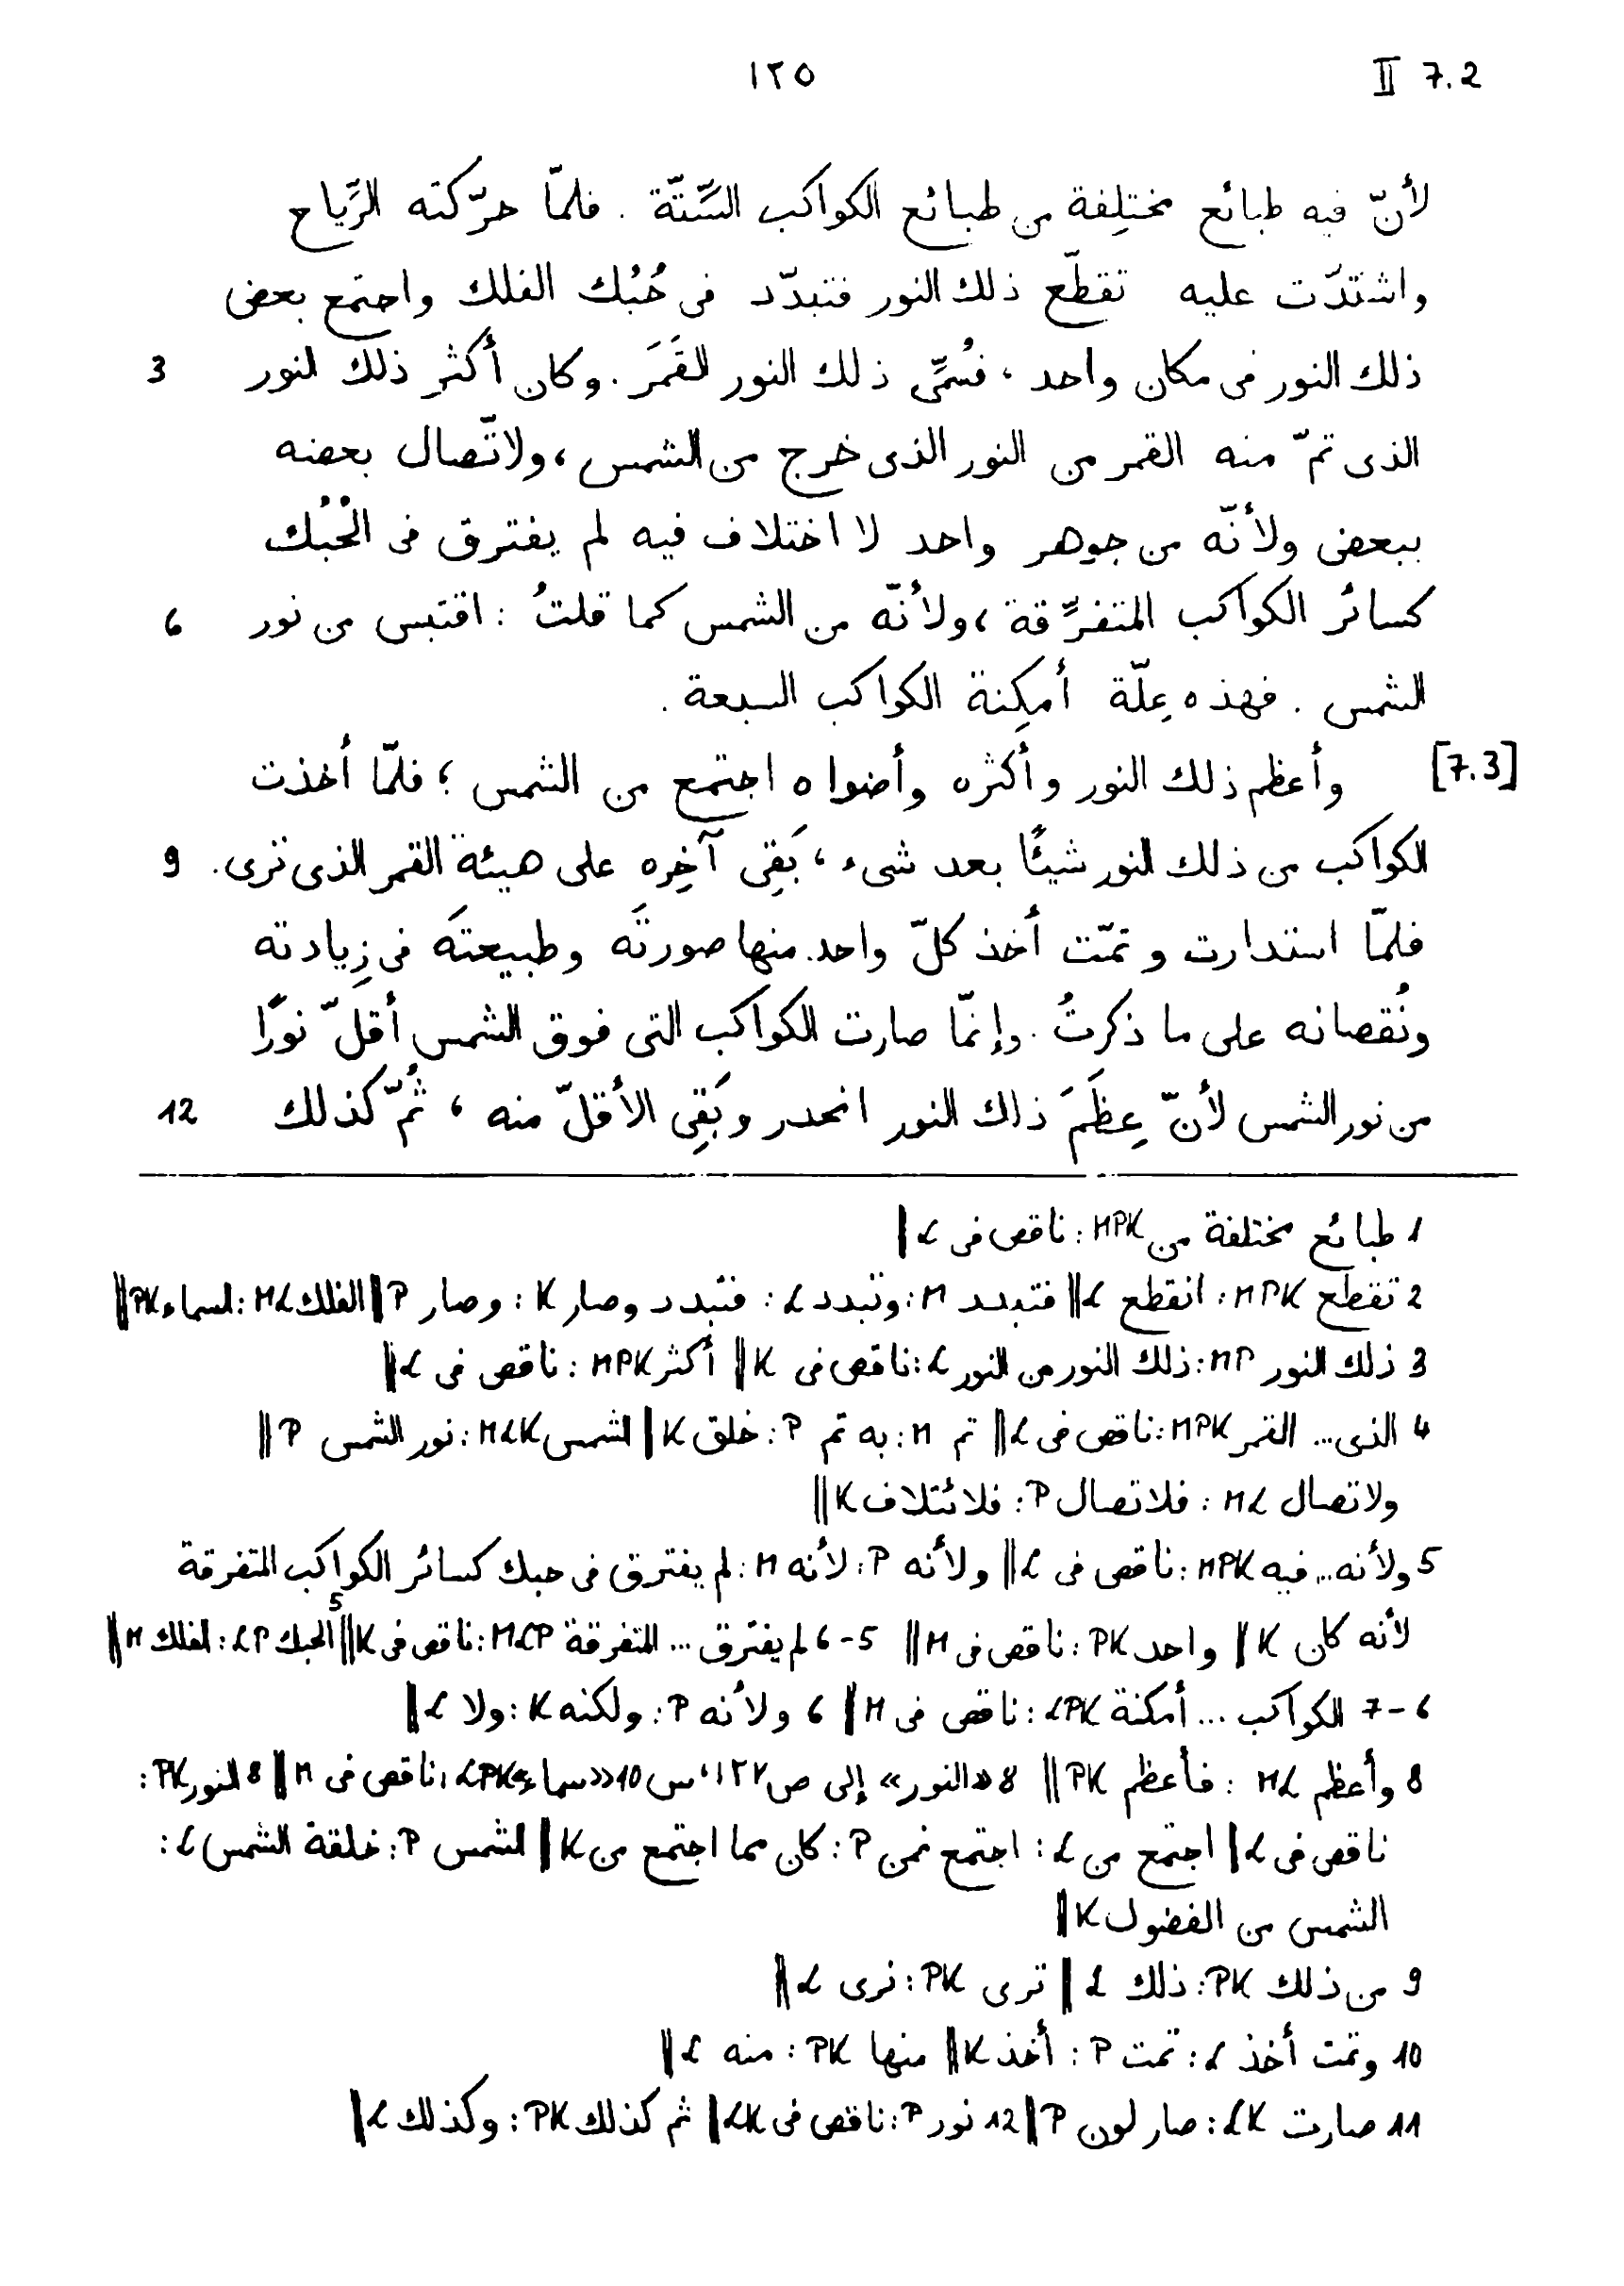 II 7.2 ١٢٥
لأنّ فيه طبائع مختلِفة من طبائع الكواكب السِّتّة . فلمّا حرّكته الرِّياح
واشتدّت عليه تقطّع ذلك النور فتبدّد فى حُبُك الفلك واجتمع بعض
ذلك النور فى مكان واحد ، فسُمِّى ذلك النور القَمَرَ . وكان أكثرِ ذلك النور 3
الذى تمّ منه القمر من النور الذى خرج من الشمس ، ولاتّصال بعضه
ببعض ولأنّه من جوهر واحد لا اختلاف فيه لم يفترق فى الحُبُك
كسائر الكواكب المتفرِّقة ، ولأنّه من الشمس كما قلتُ : اقتبس من نور 6
الشمس . فهذه عِلّة أمكِنة الكواكب السبعة .
[7.3] وأعظم ذلك النور وأكثره وأضواه اجتمع من الشمس ؛ فلمّا أخذت
الكواكب من ذلك النور شيئًا بعد شىء ، بَقِى آخِره على هيئة القمر الذى ترى . 9
فلمّا استدارت وتمّت أخذ كلّ واحد منها صورتَه وطبيعتَه فى زِيادته
ونُقصانه على ما ذكرتُ . وإنمّا صارت الكواكب التى فوق الشمس أقلّ نورًا
من نور الشمس لأنّ عِظَمَ ذلك النور انحدر وبَقِى الأقلّ منه ، ثُمّ كذلك 12
1 طبائع مختلفة من MPK : ناقص فى L ||
2 تقطع MPK : انقطع L || فتبدد M : وتبدد L : فتبدد وصار K : وصار P || الفلك ML : السماء PK ||
3 ذلك النور MP : ذلك النور من النور L : ناقص فى K || أكثر MPK : ناقص فى L ||
4 الذى ... القمر MPK : ناقص فى L || تم M : به تم P : خلق K || الشمس MLK : نور الشمس P ||
ولاتصال ML : فلاتصال P : فلائتلاف K ||
5 ولأنه ... فيه MPK : ناقص فى L || ولأنه P : لأنه M : لم يفترق فى حبك كسائر الكواكب المتفرقة
لأنه كان K || واحد PK : ناقص فى M || 5-6 لم يفترق ... المتفرقة MLP : ناقص فى K || 5 الحبك LP : الفلك M ||
6-7 الكواكب ... أمكنة LPK : ناقص فى M || 6 ولأنه P : ولكنه K : ولا L ||
8 وأعظم ML : فأعظم PK || 8 «النور» إلى ص ١٢٧، س 10 «سماء» LPK : ناقص فى M || 8 النور PK :
ناقص فى L || اجتمع من L : اجتمع فمن P : كان مما اجتمع من K || الشمس P : خلقة الشمس L :
الشمس من الفضول K ||
9 من ذلك PK : ذلك L || ترى PK : نرى L ||
10 وتمت أخذ L : تمت P : أخذ K || منها PK : منه L ||
11 صارت LK : صار لون P || 12 نور P : ناقص فى LK || ثم كذلك PK : وكذلك L ||